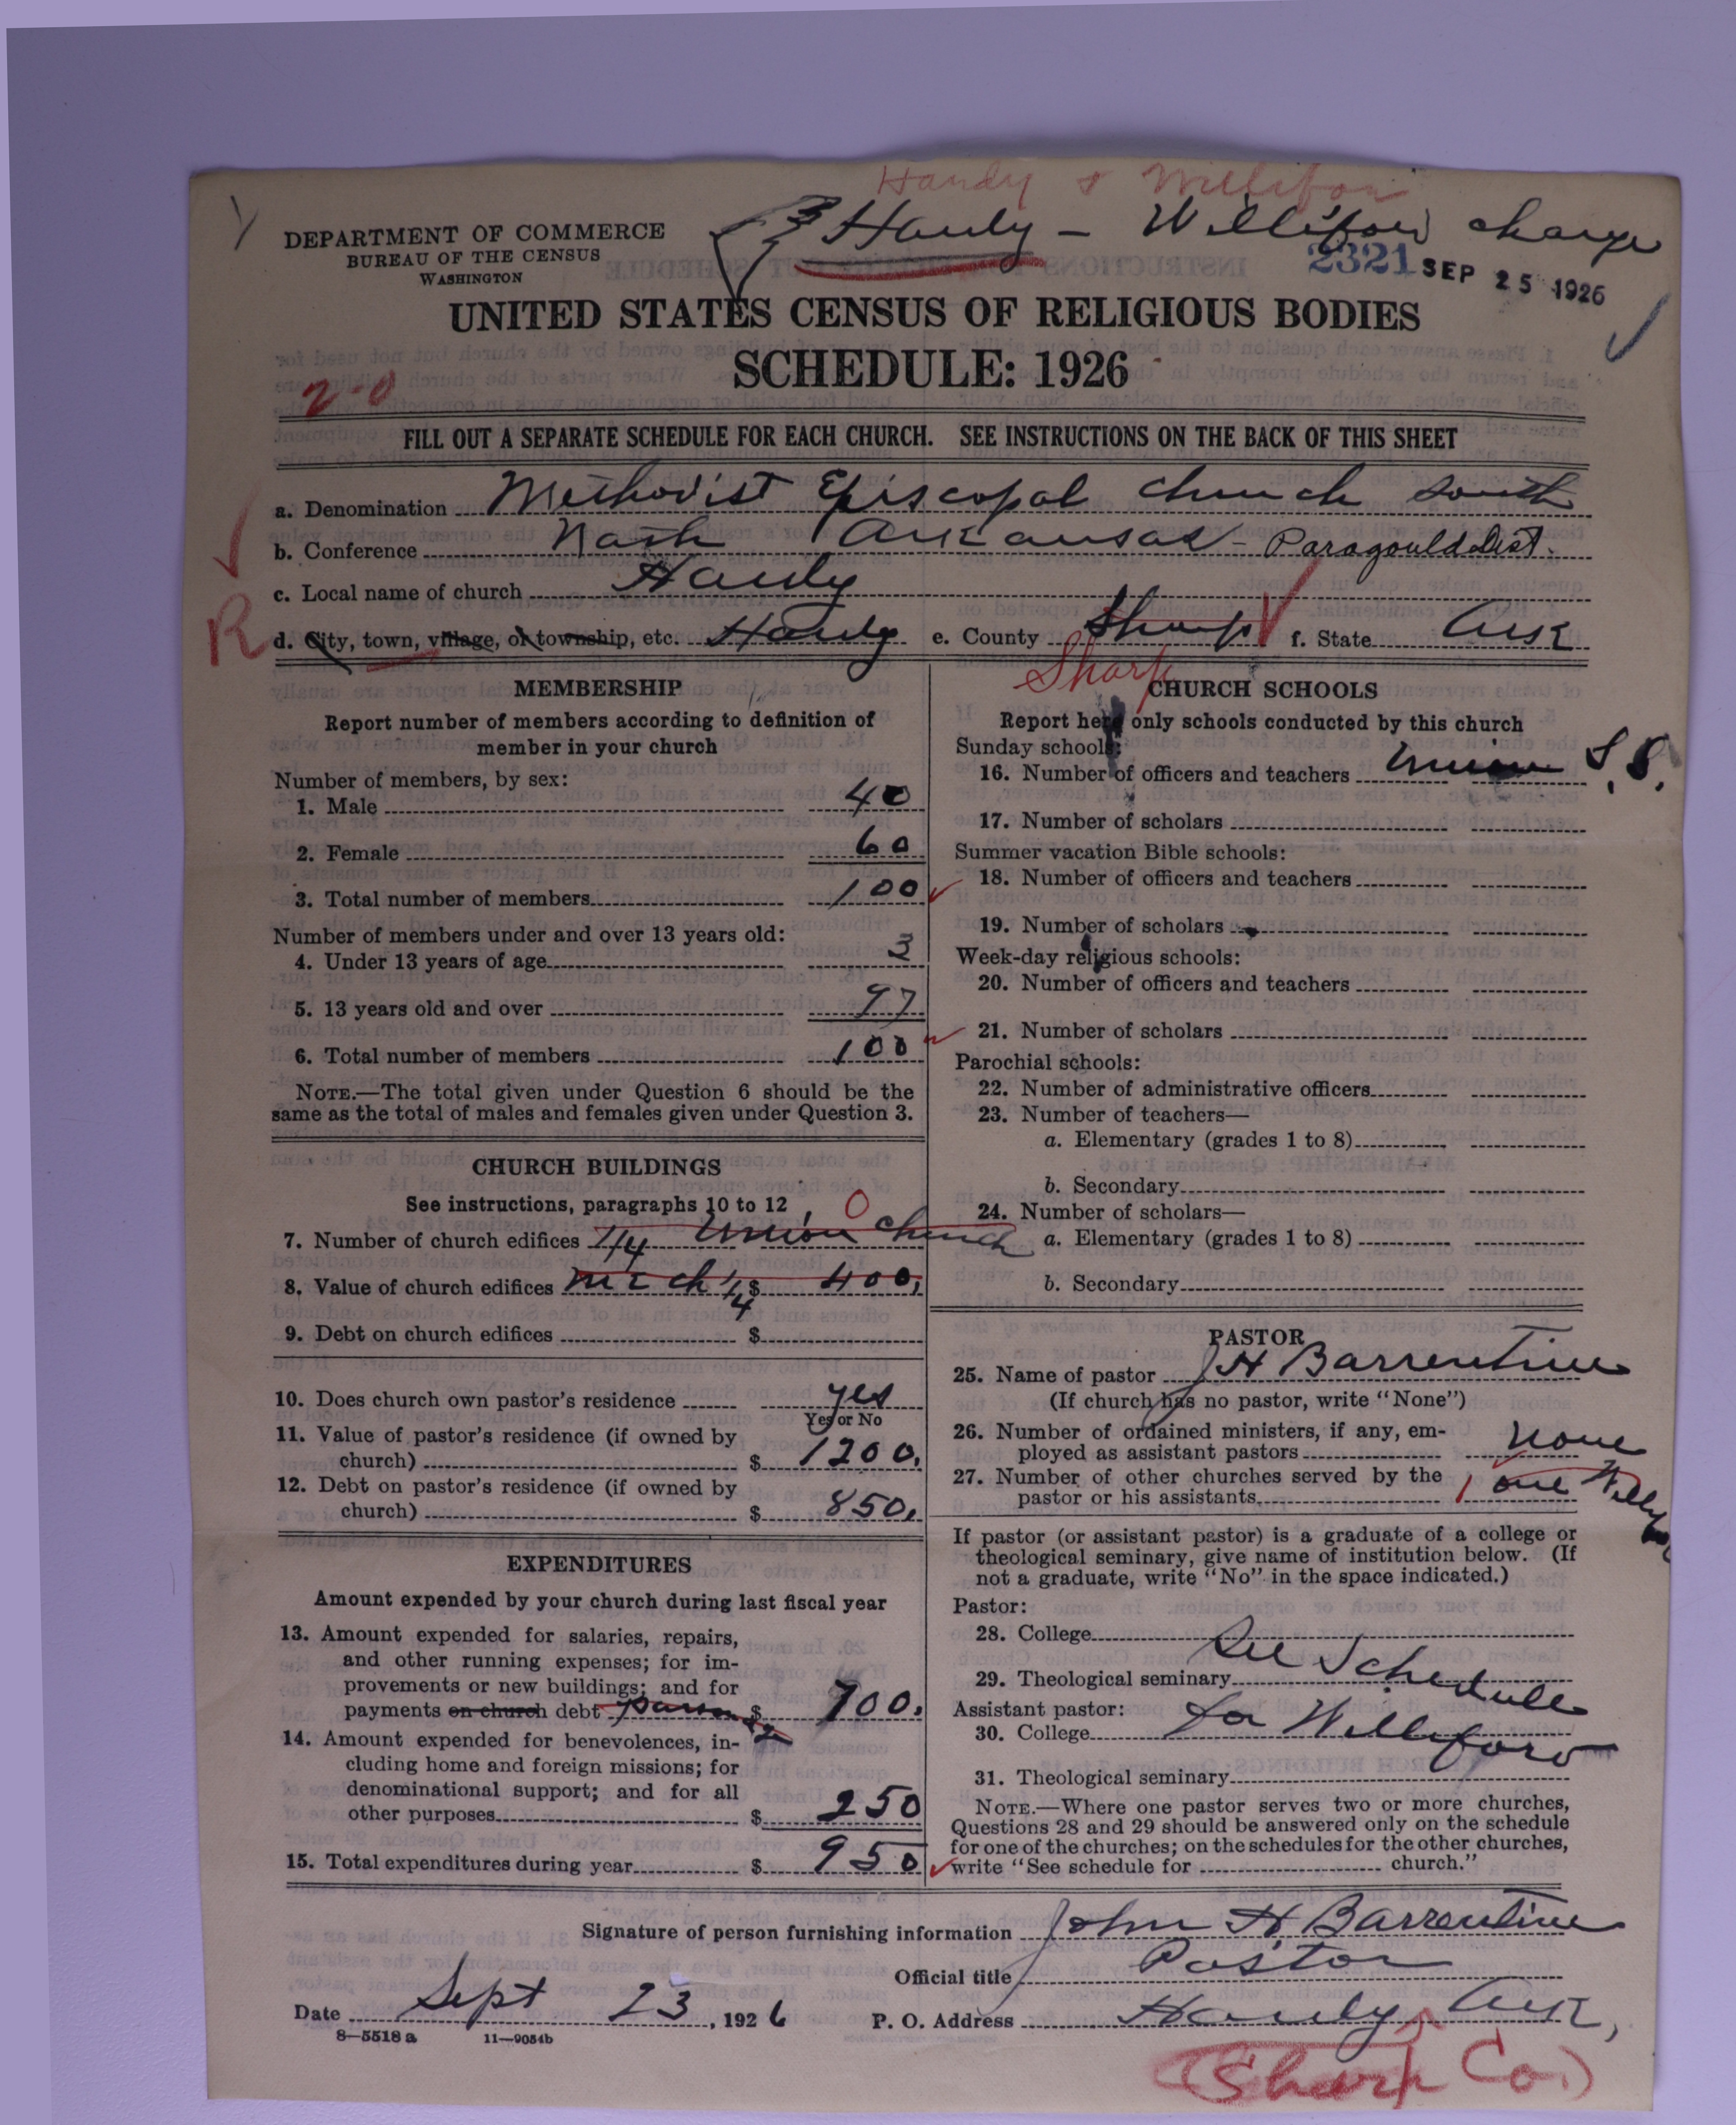 Hardy & Williford
Hardy - Williford charge
DEPARTMENT OF COMMERCE
BUREAU OF THE CENSUS
WASHINGTON
2321 SEP 25 1926
UNITED STATES CENSUS OF RELIGIOUS BODIES
SCHEDULE: 1926
2-0
FILL OUT A SEPARATE SCHEDULE FOR EACH CHURCH. SEE INSTRUCTIONS ON THE BACK OF THIS SHEET
a. Denomination Methodist Episcopal Church South
b. Conference North Arkansas - Paragould Dist.
c. Local name of church Hardy
R
d. City, town, village, or township, etc. Hardy e. County Sharp f. State Ark
Sharp
MEMBERSHIP
Report number of members according to definition of
member in your church
Number of members, by sex:
1. Male 40
2. Female 60
3. Total number of members 100
Number of members under and over 13 years old:
4. Under 13 years of age 3
5. 13 years old and over 97
6. Total number of members 100
NOTE.—The total given under Question 6 should be the
same as the total of males and females given under Question 3.
CHURCH BUILDINGS
See instructions, paragraphs 10 to 12
0
7. Number of church edifices 1/4 Union Church
8. Value of church edifices M E ch 1/4 $ 400.
9. Debt on church edifices $
10. Does church own pastor's residence yes
Yes or No
11. Value of pastor's residence (if owned by
church) $ 1200.
12. Debt on pastor's residence (if owned by
church) $ 850.
EXPENDITURES
Amount expended by your church during last fiscal year
13. Amount expended for salaries, repairs,
and other running expenses; for im-
provements or new buildings; and for
payments on church debt $ 700.
14. Amount expended for benevolences, in-
cluding home and foreign missions; for
denominational support; and for all
other purposes $ 250
15. Total expenditures during year $ 950
CHURCH SCHOOLS
Report here only schools conducted by this church
Sunday schools:
16. Number of officers and teachers Union S.S.
17. Number of scholars
Summer vacation Bible schools:
18. Number of officers and teachers
19. Number of scholars
Week-day religious schools:
20. Number of officers and teachers
21. Number of scholars
Parochial schools:
22. Number of administrative officers
23. Number of teachers—
a. Elementary (grades 1 to 8)
b. Secondary
24. Number of scholars—
a. Elementary (grades 1 to 8)
b. Secondary
PASTOR
25. Name of pastor J H Barrentine
(If church has no pastor, write "None")
26. Number of ordained ministers, if any, em-
ployed as assistant pastors none
27. Number of other churches served by the
pastor or his assistants 1 one Williford
If pastor (or assistant pastor) is a graduate of a college or
theological seminary, give name of institution below. (If
not a graduate, write "No" in the space indicated.)
Pastor:
28. College
29. Theological seminary See Schedule
Assistant pastor:
30. College for Williford
31. Theological seminary
NOTE.—Where one pastor serves two or more churches,
Questions 28 and 29 should be answered only on the schedule
for one of the churches; on the schedules for the other churches,
write "See schedule for church."
Signature of person furnishing information John H Barrentine
Official title Pastor
Date Sept 23, 1926 P. O. Address Hardy, Ark,
8—5518 a 11—9054b
(Sharp Co.)